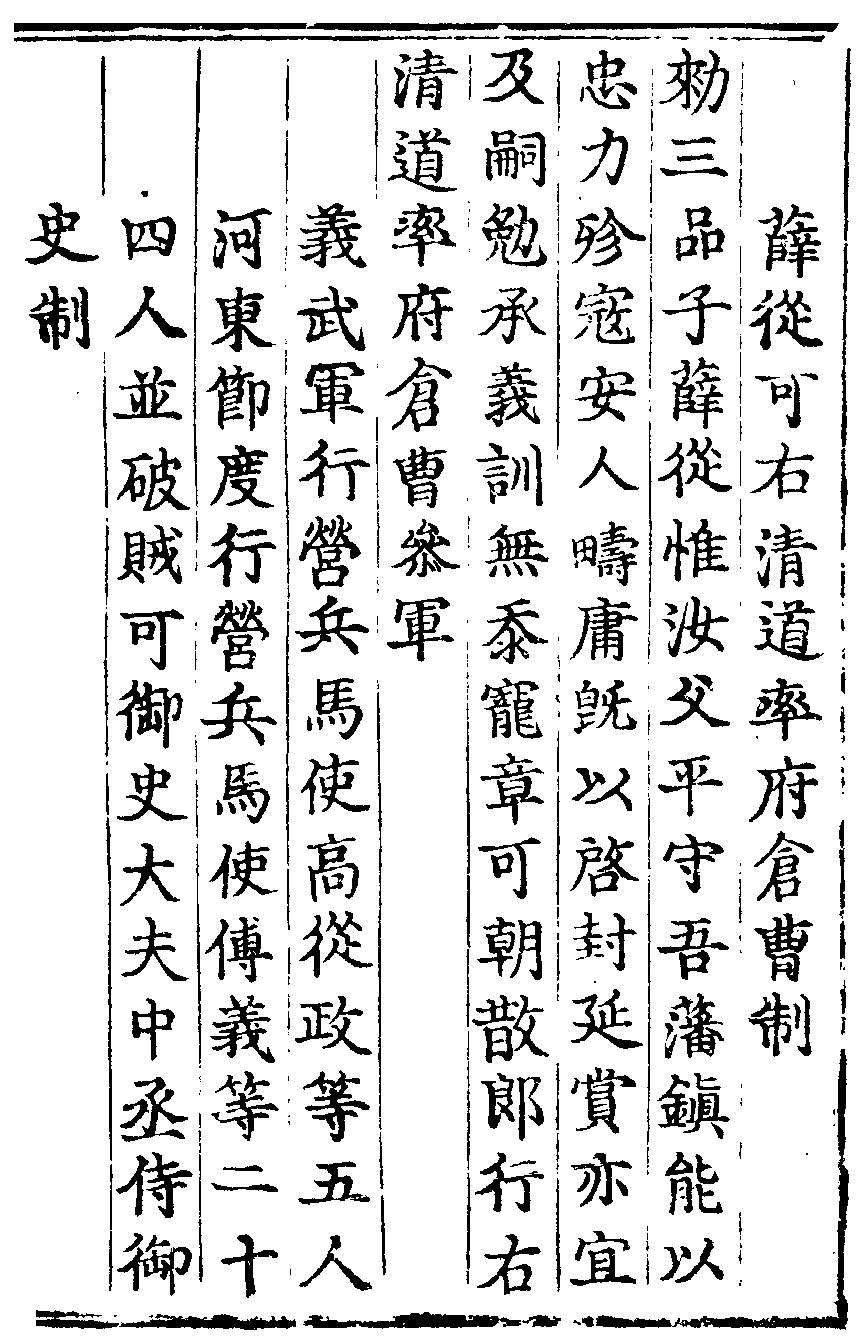 薛從可右清道率府倉曹制
勑三品子薛從惟汝父平守吾藩鎮能以
忠力殄寇安人疇庸旣以啓封延賞亦宜
及嗣勉承義訓無忝寵章可朝散郎行右
清道率府倉曹叅軍
義武軍行營兵馬使高從政等五人
河東節度行營兵馬使傅義等二十
四人並破賊可御史大夫中丞侍御
史制